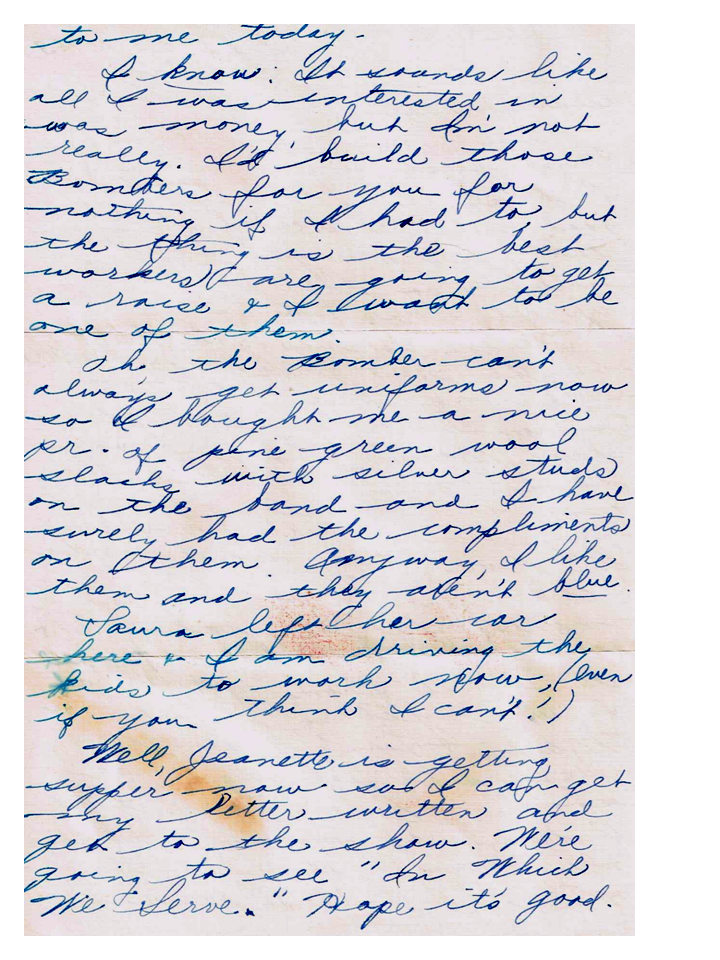 to me today.
I know: It sounds like
all I was interested in
was money but I'm not
really. I'd build those
Bombers for you for
nothing if I had to, but
the thing is the best
workers are going to get
a raise & I want to be
one of them.
Oh, the Bomber can't
always get uniforms now
so I bought me a nice
pr. of pine green wool
slacks with silver studs
on the band and I have
surely had the compliments
on them. Anyway, I like
them and they aren't blue.
Laura left her car
here & I am driving the
kids to work now, (even
if you think I can't!)
Well, Jeanette is getting
supper now so I can get
my letter written and
get to the show. We're
going to see "In Which
We Serve." Hope it's good.